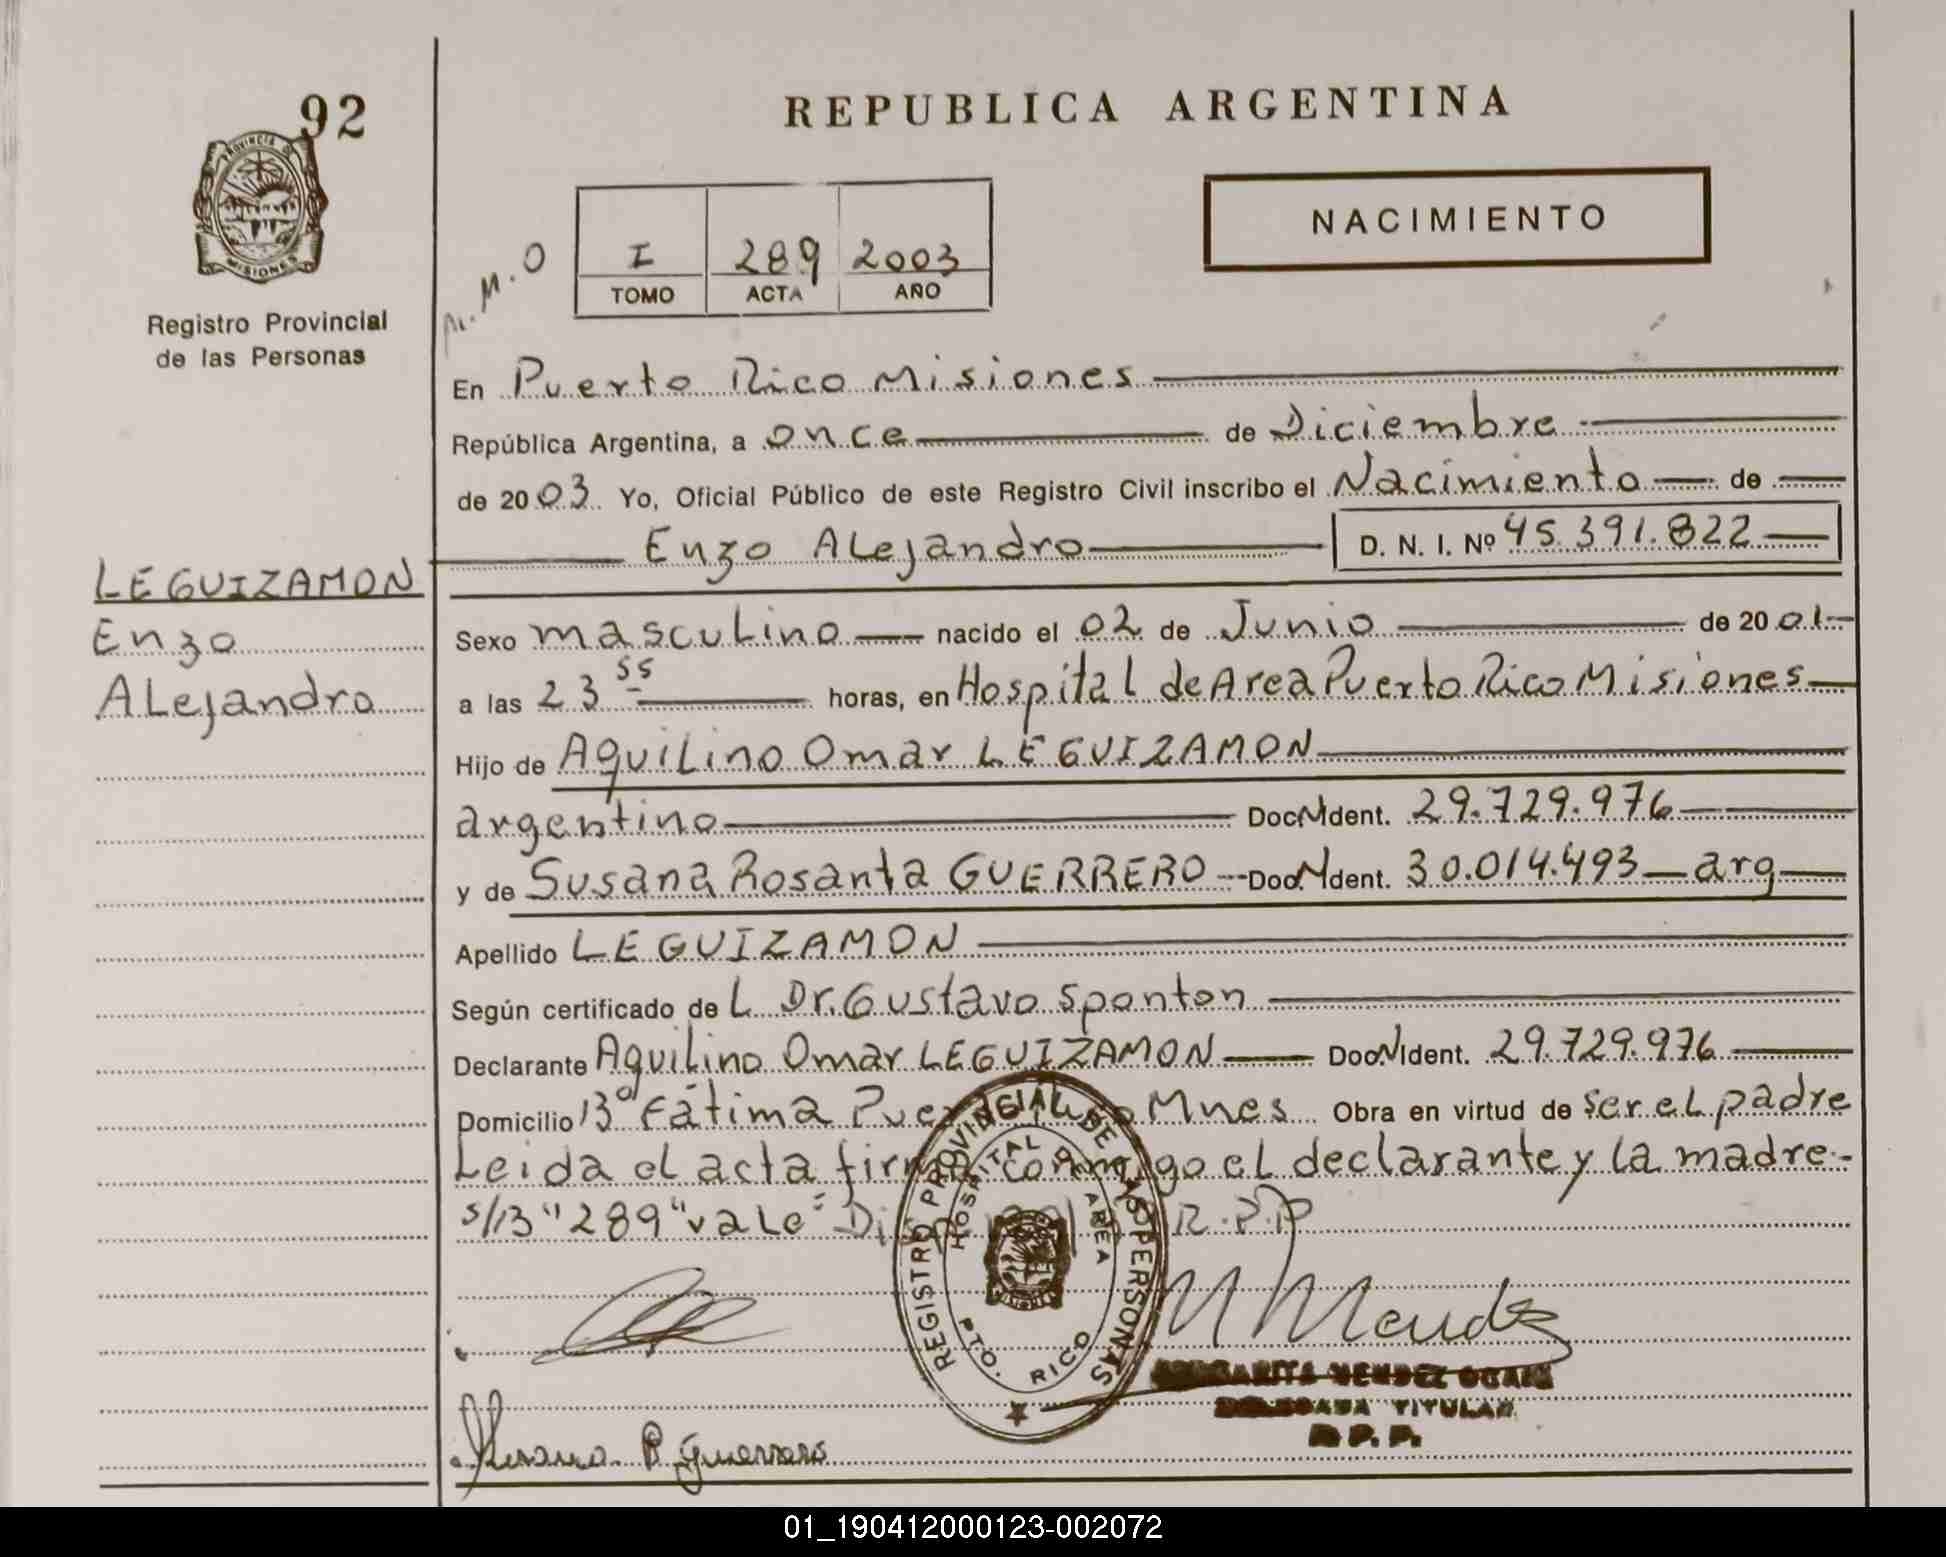 92
REPUBLICA ARGENTINA
PROVINCIA DE
MISIONES
Registro Provincial
de las Personas
M.M.O
I 289 2003
TOMO ACTA AÑO
NACIMIENTO
En Puerto Rico Misiones
República Argentina, a once de Diciembre
de 2003 Yo, Oficial Público de este Registro Civil inscribo el Nacimiento de
Enzo Alejandro D. N. I. Nº 45.391.822
LEGUIZAMON
Enzo
Alejandro
Sexo masculino nacido el 02 de Junio de 2001
a las 23 55 horas, en Hospital de Area Puerto Rico Misiones
Hijo de Aquilino Omar LEGUIZAMON
argentino Doc. N Ident. 29.729.976
y de Susana Rosanta GUERRERO Doc. N Ident. 30.014.493 arg
Apellido LEGUIZAMON
Según certificado de L Dr. Gustavo Sponton
Declarante Aquilino Omar LEGUIZAMON Doc. N Ident. 29.729.976
Domicilio Bº Fátima Puerto Rico Mnes Obra en virtud de ser el padre
Leida el acta firman conmigo el declarante y la madre
s/B "289" vale R.P.P
REGISTRO PROVINCIAL DE LAS PERSONAS
HOSPITAL DE AREA
MISIONES
PTO. RICO
M Mendez
MARGARITA MENDEZ
DELEGADA TITULAR
R.P.P.
Susana R Guerrero
01_190412000123-002072